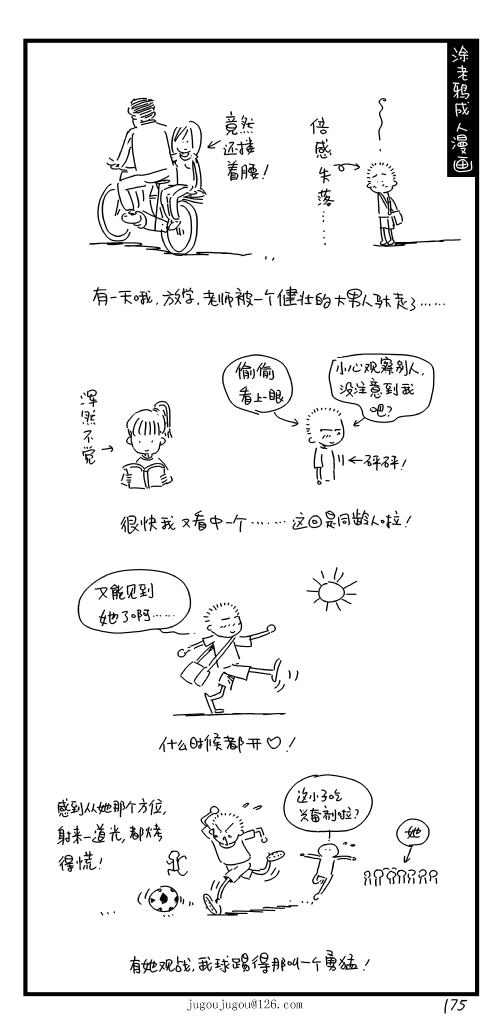 涂老鸦成人漫画
竟然
还搂
着腰！
倍感失落……
有一天哦，放学，老师被一个健壮的大男人驮走了……
浑然不觉
偷偷
看上一眼
小心观察别人，
没注意到我
吧？
砰砰！
很快我又看中一个……这回是同龄人啦！
又能见到
她了啊……
什么时候都开♡！
感到从她那个方位，
射来一道光，都烤
得慌！
这小子吃
兴奋剂啦？
她
有她观战，我球踢得那叫一个勇猛！
jugoujugou@126.com
175